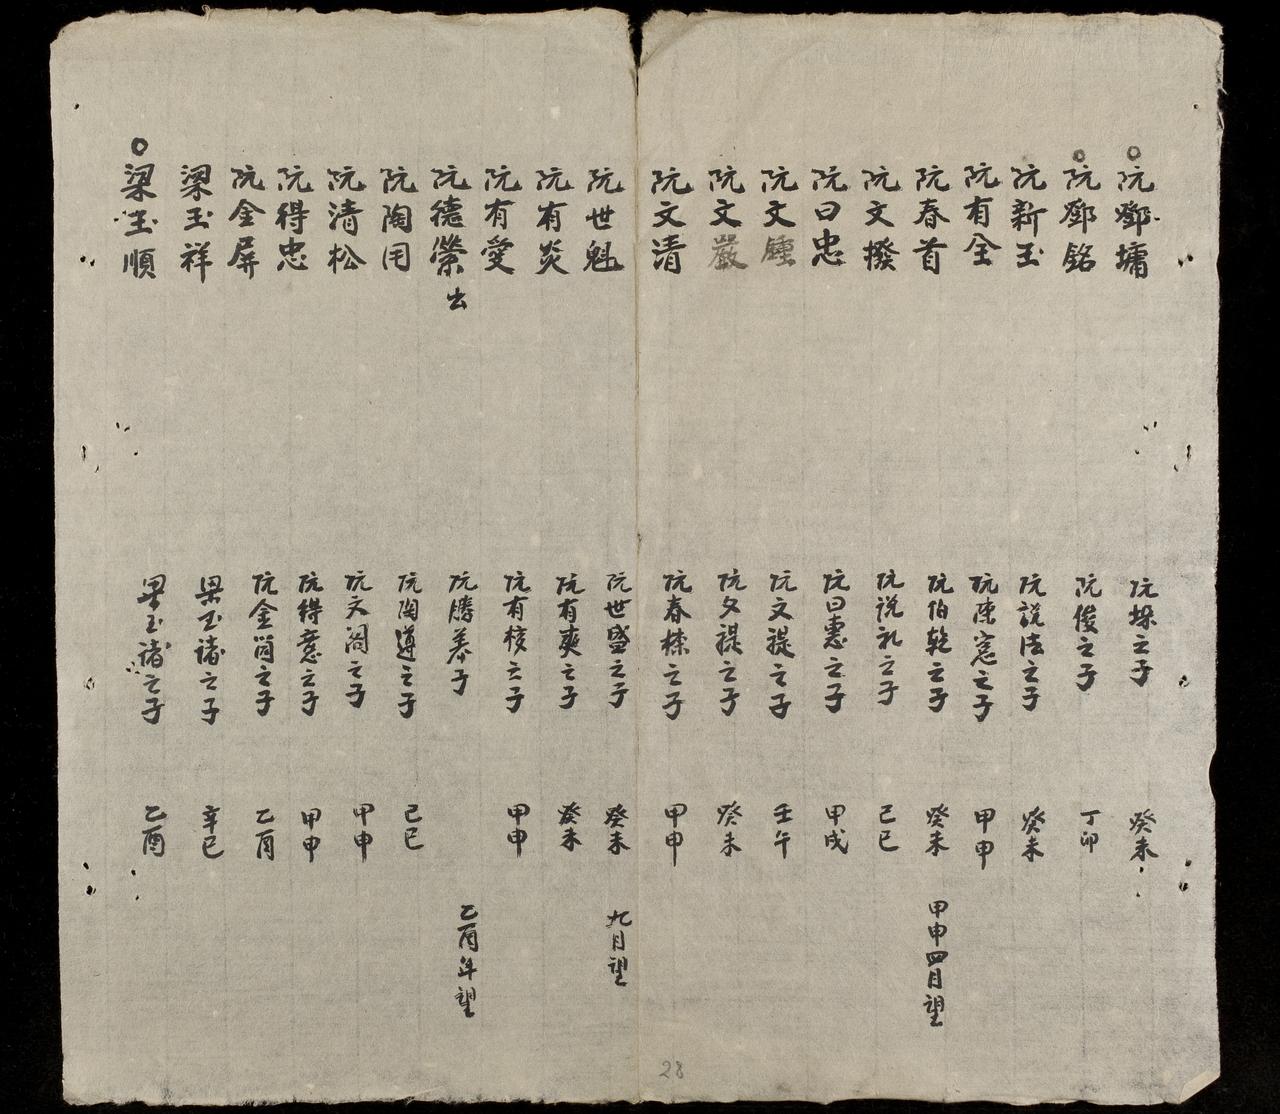 阮鄧墉 阮垛之子 癸未
阮鄧銘 阮俊之子 丁卯
阮新玉 阮説法之子 癸未
阮有全 阮陳憲之子 甲申
阮春首 阮伯乾之子 癸未 甲申四月望
阮文撥 阮説礼之子 己巳
阮曰忠 阮曰惠之子 甲戌
阮文鍾 阮文禔之子 壬午
阮文嚴 阮文禔之子 癸未
阮文清 阮春榡之子 甲申
阮世魁 阮世盛之子 癸未 九月望
阮有炎 阮有爽之子 癸未
阮有愛 阮有核之子 甲申
阮德榮出 阮勝恭子 乙酉年望
阮陶用 阮陶遵之子 己巳
阮清松 阮文閣之子 甲申
阮得忠 阮得意之子 甲申
阮金屏 阮金筒之子 乙酉
梁玉祥 梁玉諸之子 辛巳
梁玉順 梁玉諸之子 乙酉
28